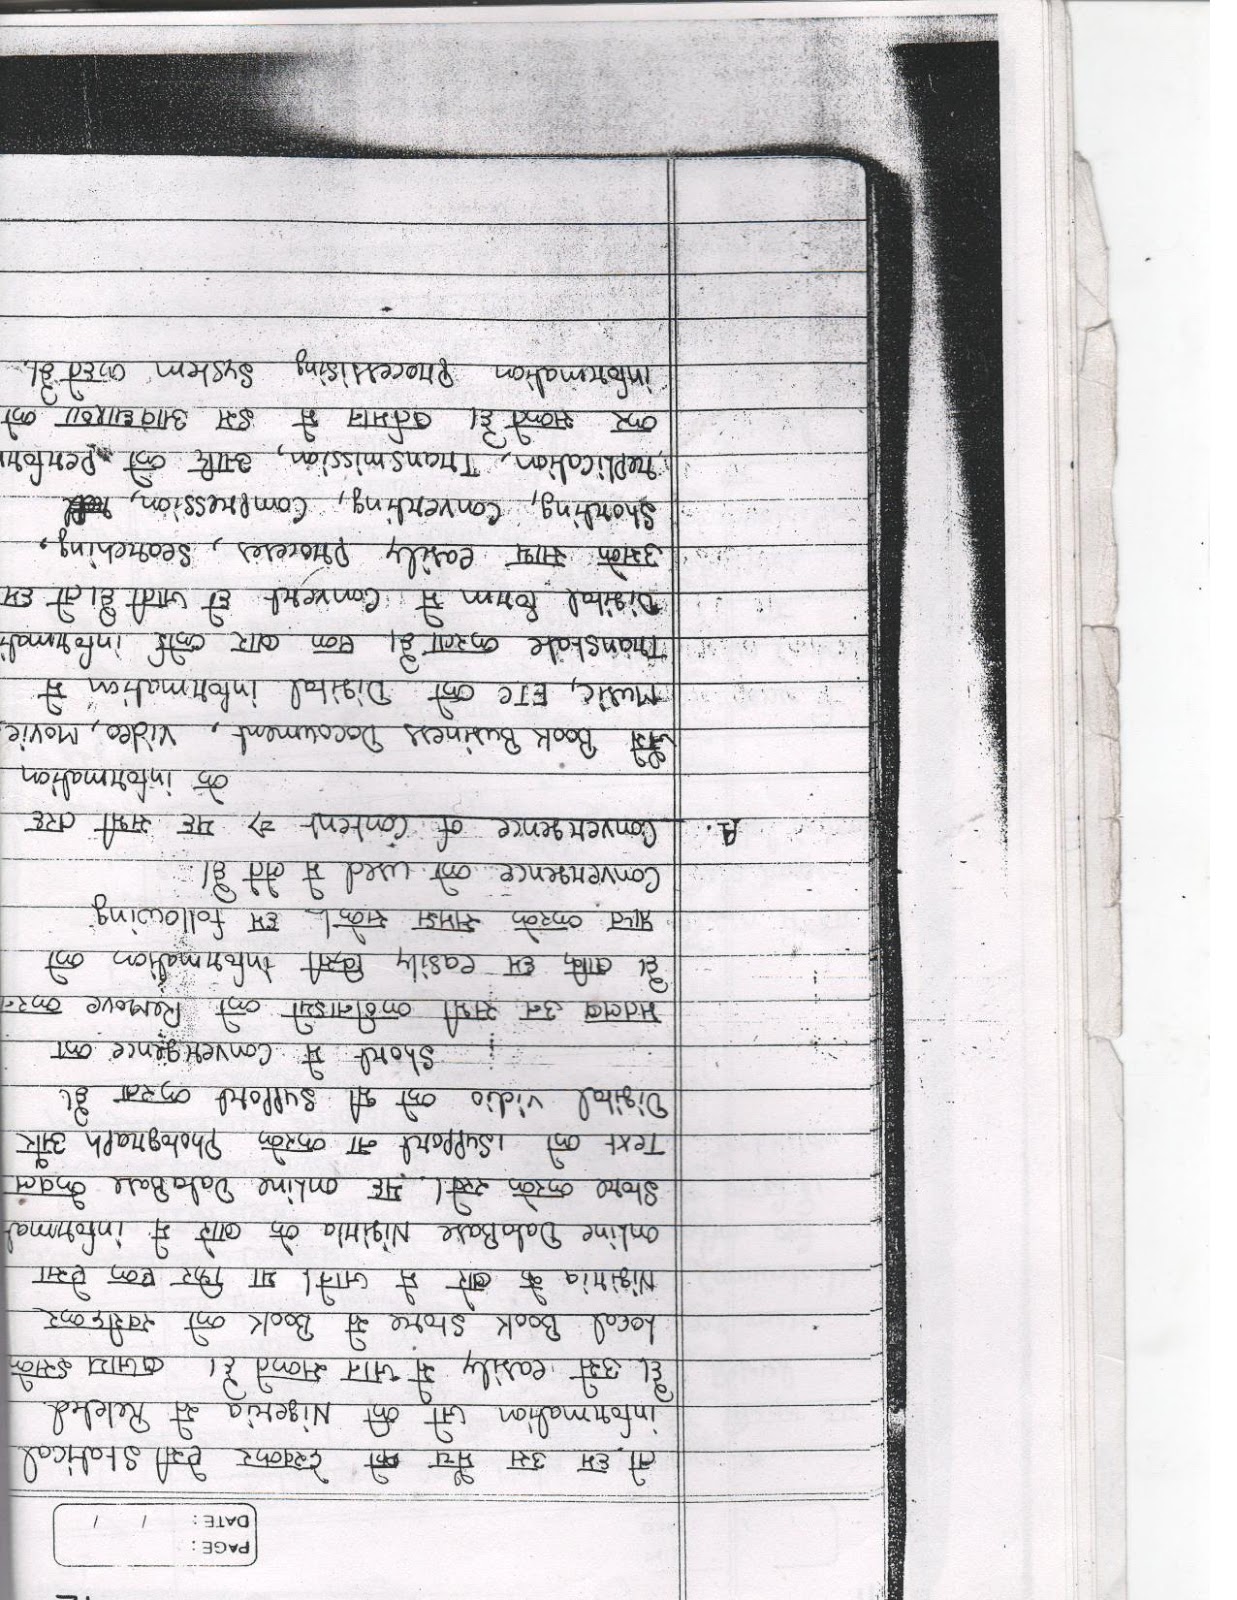 PAGE:
DATE: / /
तो हम उस मैच को देखकर ऐसी Statical
information जो की Nigeria से Releted
है। उसे easily से जान सकते है। बजाय इसके
Local Book Store से Book को खरीदकर
Nigiria के बारे में जाने। या फिर एक ऐसा
online DataBase Nigiria के बारे में informat
Store करके रखे। यह online DataBase केवल
Text को support ना करके Photograph और
Digital vidio को भी support करता है।
Short में Convergence का
मतलब उन सभी कठीनाइयो को Remove करना
है ताकि हम easily किसी information को
प्राप्त करके समझ सके। हम following
Convergence को used में लेते है।
A. Convergence of Content → यह सभी तरह
के information
जैसे Book Business Docoument, Video, Movie,
Music, ETC को Digital information में
Transtate करता है। एक बार कोई informati
Digital form में Convert हो जाती है। तो हम
उसके साथ easily process, searching,
Shorting, Converting, Compression,
replication, Transmission, आदि को Perform
कर सकते है। वर्तमान में इस अवधारणा को
information Processising system कहते है।